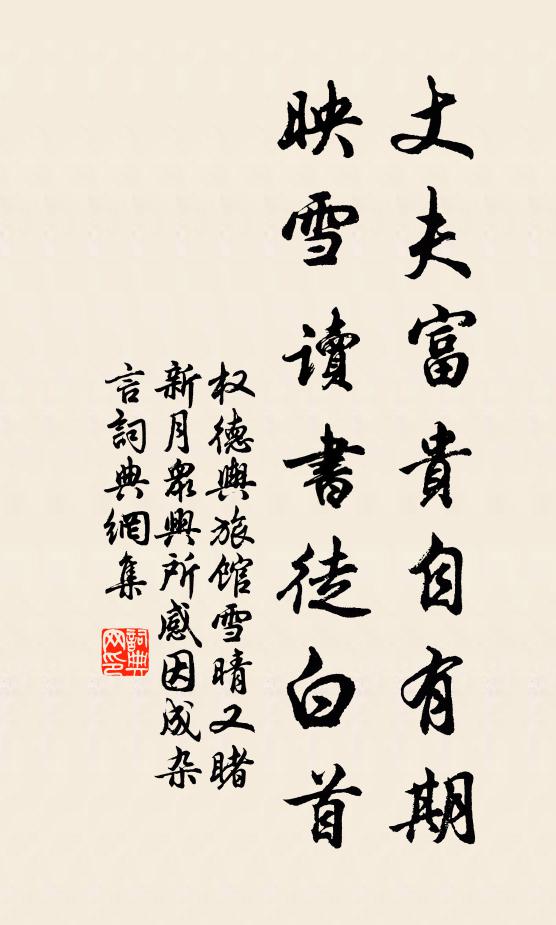 丈夫富貴自有期
映雪讀書徒白首
权德輿旅馆雪晴又睹
新月眾興所感因成杂
言詞典網集
詞典
网印